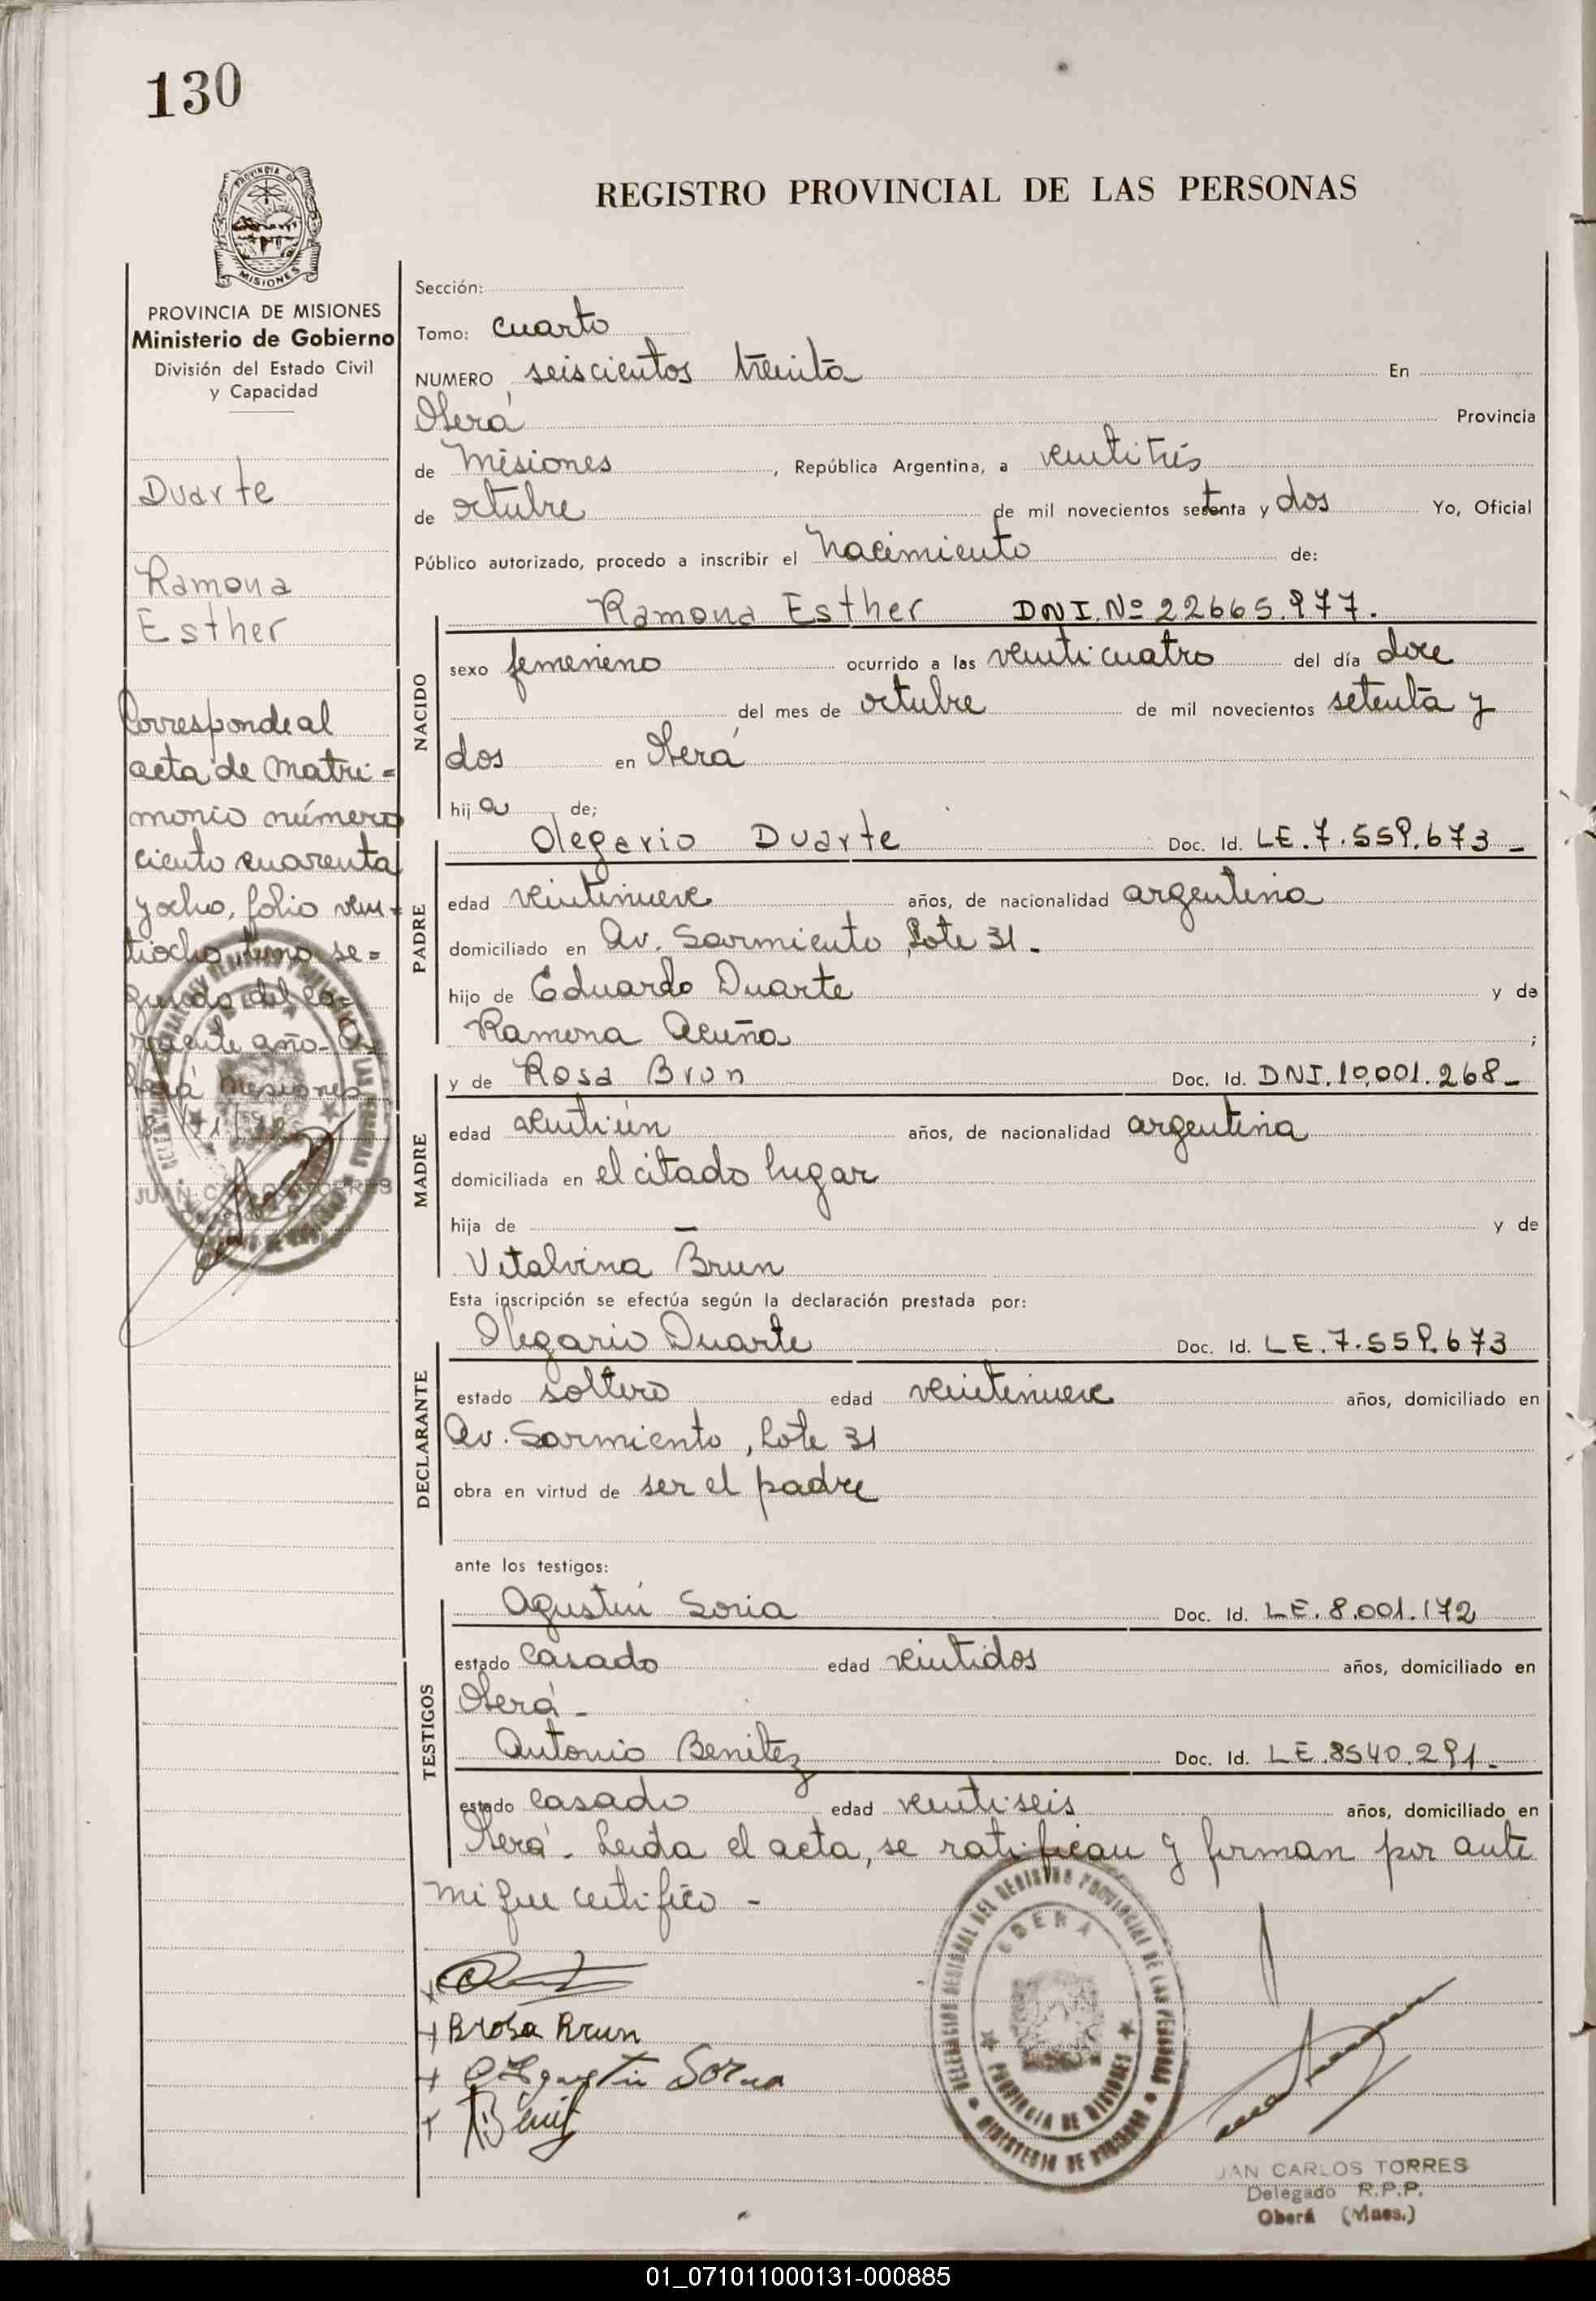 130
PROVINCIA DE
MISIONES
REGISTRO PROVINCIAL DE LAS PERSONAS
PROVINCIA DE MISIONES
Ministerio de Gobierno
División del Estado Civil
y Capacidad
Duarte
Ramona
Esther
Corresponde al
acta de Matri=
monio número
ciento cuarenta
y ocho, folio vein=
tiocho, tomo se=
gundo del co=
rriente año.
Misiones
Sección:
Tomo: cuarto
NUMERO seiscientos treinta En
Oberá Provincia
de Misiones, República Argentina, a veintitrés
de octubre de mil novecientos setenta y dos Yo, Oficial
Público autorizado, procedo a inscribir el nacimiento de:
NACIDO
Ramona Esther DNI. Nº 22665.977.
sexo femenino ocurrido a las veinticuatro del día doce
del mes de octubre de mil novecientos setenta y
dos en Oberá
hija de;
PADRE
Olegario Duarte Doc. Id. LE. 7.559.673 -
edad veintinueve años, de nacionalidad argentina
domiciliado en Av. Sarmiento, Lote 31 -
hijo de Eduardo Duarte y de
Ramona Acuña ;
MADRE
y de Rosa Brun Doc. Id. DNI. 10.001.268 -
edad veintiún años, de nacionalidad argentina
domiciliada en el citado lugar
hija de — y de
Vitalvina Brun
Esta inscripción se efectúa según la declaración prestada por:
DECLARANTE
Olegario Duarte Doc. Id. LE. 7.559.673
estado soltero edad veintinueve años, domiciliado en
Av. Sarmiento, Lote 31
obra en virtud de ser el padre
ante los testigos:
TESTIGOS
Agustín Soria Doc. Id. LE. 8.001.172
estado casado edad veintidos años, domiciliado en
Oberá -
Antonio Benitez Doc. Id. LE. 8540.291 -
estado casado edad veintiseis años, domiciliado en
Oberá - Leida el acta, se ratifican y firman por ante
mi que certifico -
Brosa Brun
Agustin Soria
DELEGACION REGIONAL DEL REGISTRO PROVINCIAL DE LAS PERSONAS
OBERA
PROVINCIA DE MISIONES
MINISTERIO DE GOBIERNO
JUAN CARLOS TORRES
Delegado R.P.P.
Oberá (Mnes.)
01_071011000131-000885